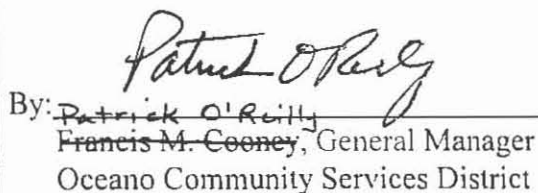 Patrick O'Reilly
By: Patrick O'Reilly
Francis M. Cooney, General Manager
Oceano Community Services District